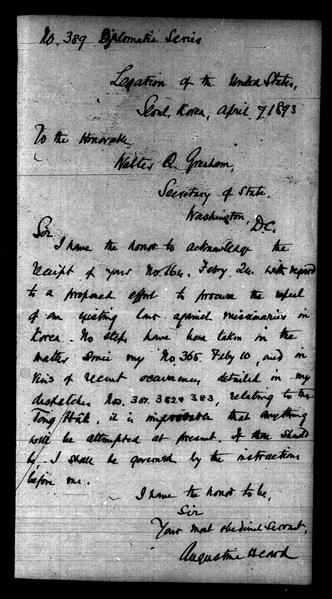 No. 389 Diplomatic Series
Legation of the United States,
Seoul, Korea, April 7, 1893
To the Honorable
Walter Q. Gresham,
Secretary of State.
Washington, D.C.
Sir
I have the honor to acknowledge the
receipt of your No. 164. Feby. 24. with regard
to a proposed effort to procure the repeal
of an existing law against missionaries in
Korea. No steps have been taken in the
matter since my No. 366, Feby 10, and in
view of recent occurrences detailed in my
despatches Nos. 381. 382 & 383, relating to the
Tong Hak, it is improbable that anything
will be attempted at present. If there should
be, I shall be governed by the instructions
before me.
I have the honor to be,
Sir
Your most obedient servant,
Augustine Heard